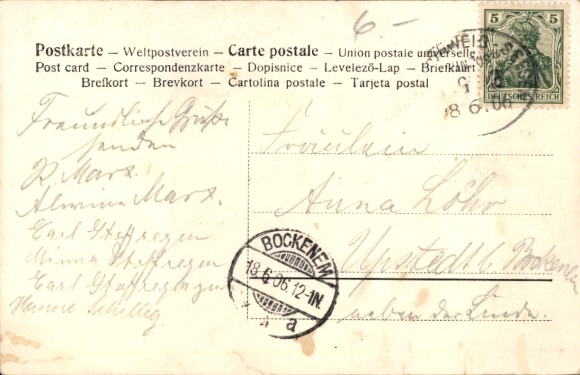 6.-
Postkarte – Weltpostverein – Carte postale – Union postale universelle
Post card – Correspondenzkarte – Dopisnice – Levelező-Lap – Briefkaart
Brefkort – Brevkort – Cartolina postale – Tarjeta postal
5 5
DEUTSCHES REICH
18 6.06
Freundliche Grüße
senden
R Marx.
Alwine Marx.
Carl Steffregen
Minna Steffregen
Carl Steffregen
Hanne Schillig
Fräulein
Anna Löhr
Upstedt b. Bockenem
neben der Linde.
BOCKENEM
18.6.06.12-1N.
a